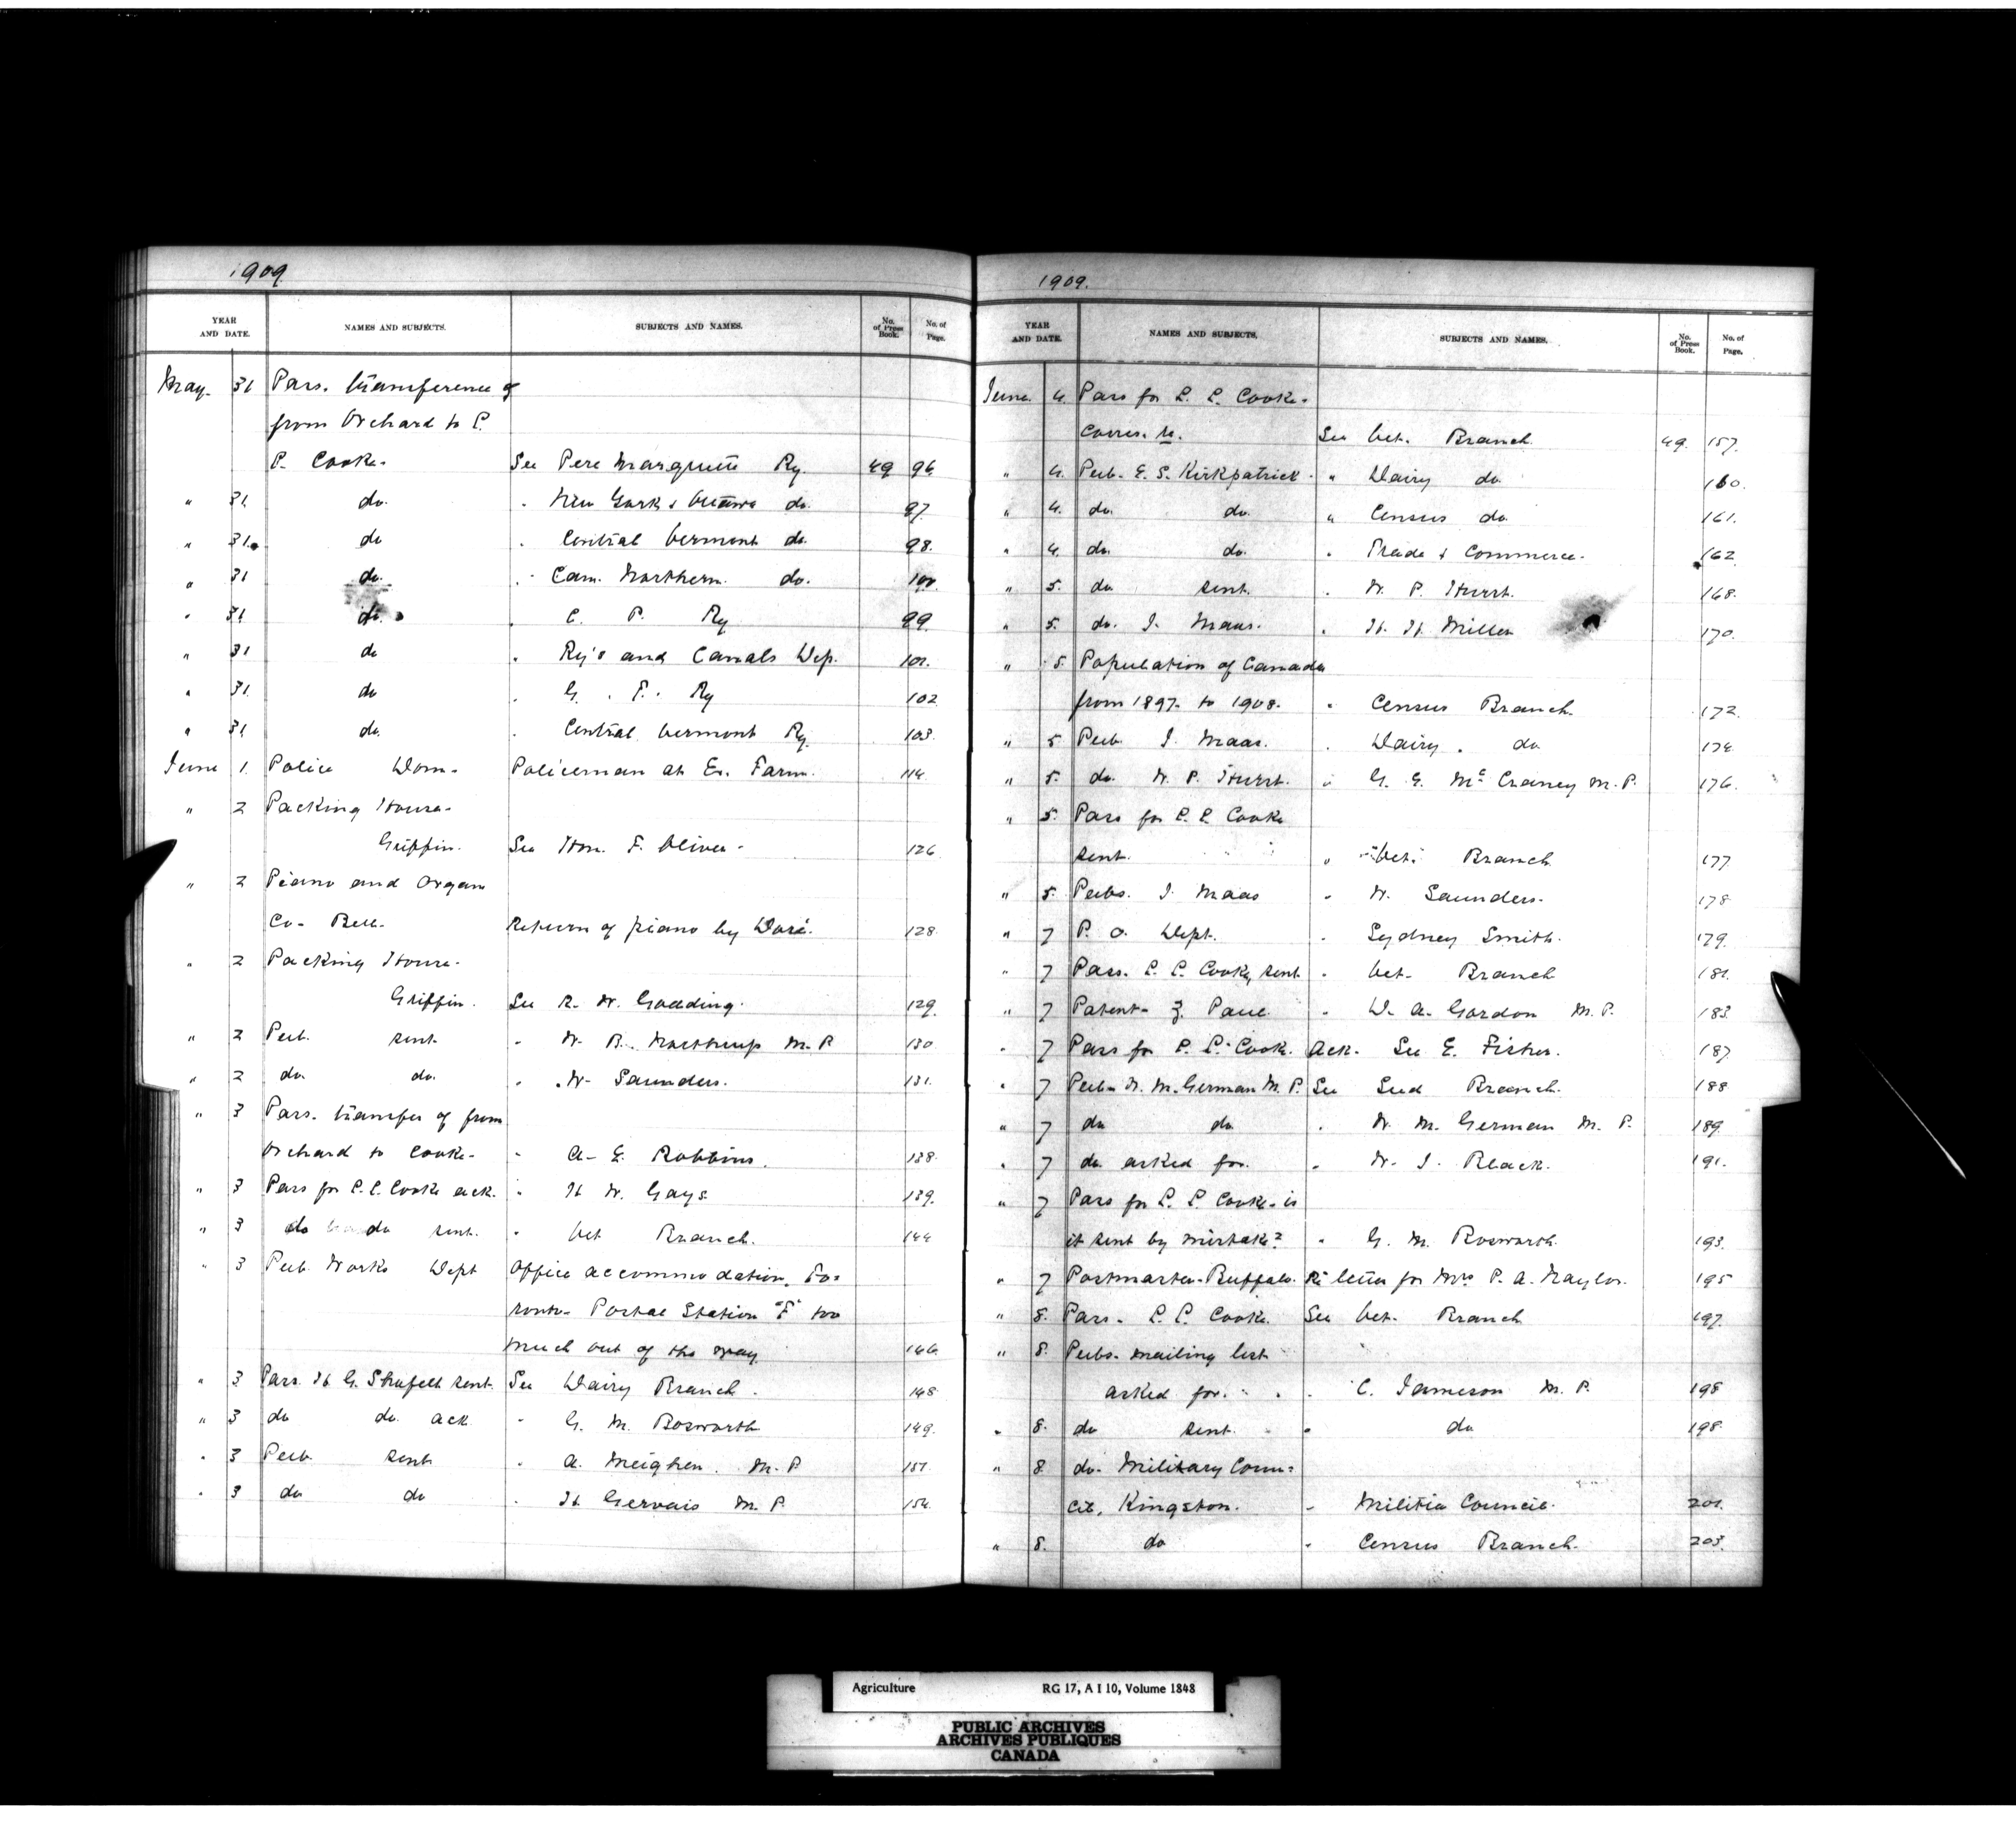 1909.
YEAR AND DATE. NAMES AND SUBJECTS. SUBJECTS AND NAMES. No. of Press Book. No. of Page.
May. 31 Pars. transference of
from Orchard to P.
P. Cooke. See Pere Marquette Ry. 49 96
" 31. do. " New York & Ottawa do. 97.
" 31. do " Central Vermont do. 98.
" 31 do. " Can. Northern do. 100.
" 31 do. " C. P. Ry 99.
" 31 do " Ry's and Canals Dep. 101.
" 31. do " G. T. Ry 102
" 31 do. " Central Vermont Ry. 103.
June 1. Police Dom. Policeman at Ex. Farm. 114.
" 2 Packing House.
Griffin. See Hon. F. Oliver. 126
" 2 Piano and Organ
Co. Bell. Return of piano by Doré. 128.
" 2 Packing House.
Griffin. See R. W. Goading. 129.
" 2 Pub. sent " W. B. Northrup M.P. 130
" 2 do. do. " W. Saunders. 131.
" 3 Pars. transfer of from
Orchard to Cooke. " A. E. Robbins. 138.
" 3 Pars for P. P. Cooke ack. " H. W. Gays. 139.
" 3 do do sent. " Vet Branch. 144
" 3 Pub. Works Dept Office accommodation, To=
ronto. Postal Station "F" too
much out of the way. 146.
" 3 Pars. H. G. Shufelt sent. See Dairy Branch. 148
" 3 do do. ack. " G. M. Bosworth 149.
" 3 Pub. sent " A. Meighen. M. P. 151.
" 3 do do " H. Gervais M. P. 154.
1909.
YEAR AND DATE. NAMES AND SUBJECTS. SUBJECTS AND NAMES. No. of Press Book. No. of Page.
June 4. Pars for P. P. Cooke.
Corres. re. See Vet. Branch. 49. 157.
" 4. Pub. E. S. Kirkpatrick. " Dairy do. 160.
" 4. do. do. " Census do. 161.
" 4. do. do. " Trade & Commerce. 162
" 5. do sent. " W. P. Hurst. 168.
" 5. do. J. Maas. " H. H. Miller 170.
" 5. Population of Canada
from 1897. to 1908. " Census Branch. 172.
" 5 Pub. J. Maas. " Dairy. do 174.
" 5. do. W. P. Hurst. " G. E. McCraney M.P. 176.
" 5. Pars for P. P. Cooke
sent. " Vet. Branch 177
" 5. Pubs. J. Maas " W. Saunders. 178
" 7 P. O. Dept. " Sydney Smith. 179.
" 7 Pars. P. P. Cooke, sent " Vet. Branch 181.
" 7 Patent- Z. Paul. " W. A. Gordon M.P. 183.
" 7 Pars for P. P. Cook. Ack. See E. Fisher. 187
" 7 Pub. W. M. German M.P. See Seed Branch. 188
" 7 do do " W. M. German M. P. 189.
" 7 do. asked for. " W. J. Black. 191.
" 7 Pars for P. P. Cooke. is
it sent by mistake? " G. M. Bosworth. 193.
" 7 Postmaster-Buffalo. Re letter for Mrs P. A. Naylor. 195
" 8. Pars. P. P. Cooke. See Vet. Branch 197.
" 8. Pubs. mailing list
asked for. " C. Jameson M. P. 198
" 8. do sent. " do 198.
" 8. do. Military Coun=
cil, Kingston. " Militia Council. 201.
" 8. do " Census Branch. 203.
Agriculture RG 17, A I 10, Volume 1848
PUBLIC ARCHIVES
ARCHIVES PUBLIQUES
CANADA